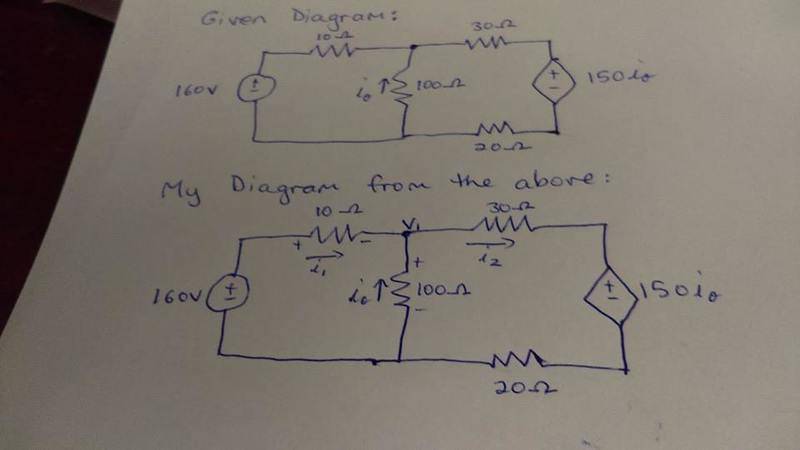 Given Diagram:
10Ω 30Ω
160V + - i₀ ↑ 100Ω + - 150i₀
20Ω
My Diagram from the above:
10Ω V₁ 30Ω
+ - i₁ + i₂
160V + - i₀ ↑ 100Ω + - 150i₀
-
20Ω